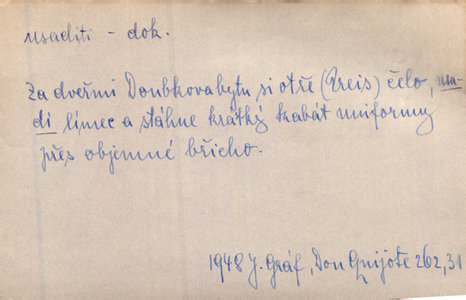 usaditi - dok.
Za dveřmi Doubkova bytu si otře (Preis) čelo, usa-
di límec a stáhne krátký kabát uniformy
přes objemné břicho.
1948 J. Gráf, Don Quijote 262,31